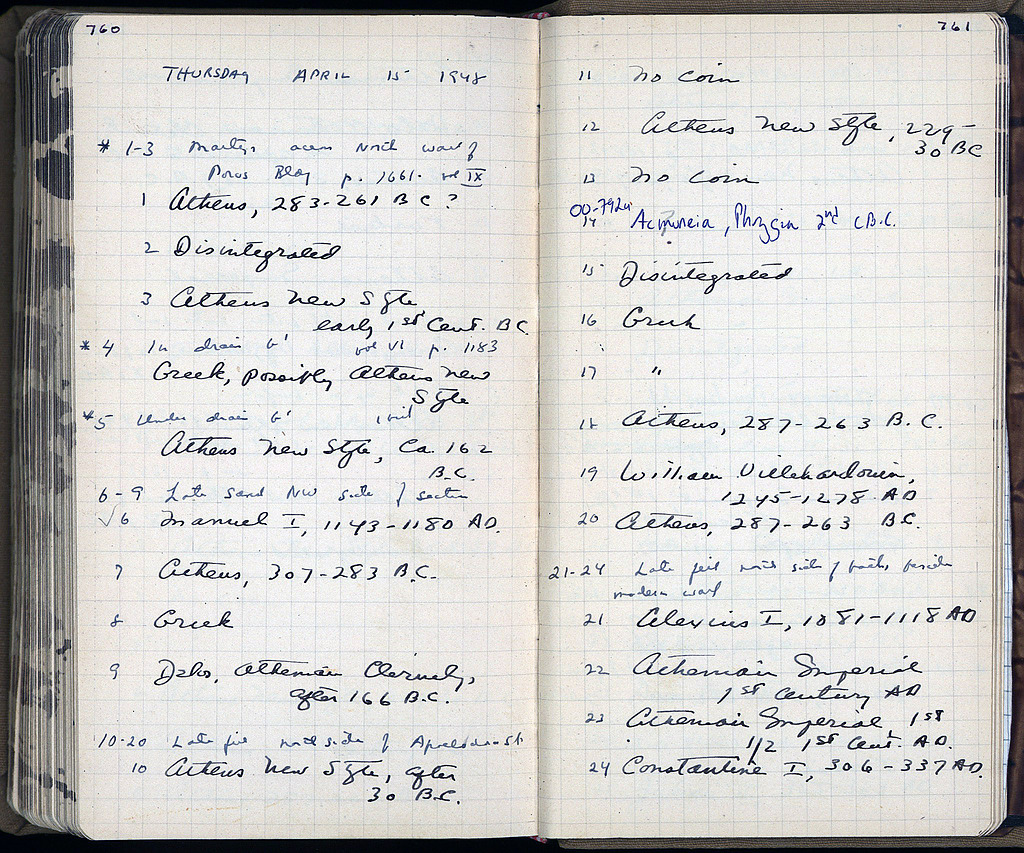 760
THURSDAY APRIL 15 1948
* 1-3 Martys across North wall of
Poros Bldg p. 1661. vol IX
1 Athens, 283-261 BC ?
2 Disintegrated
3 Athens New Style
early 1st Cent. BC.
* 4 In drain G' vol VI p. 1183
Greek, possibly Athens New
Style
* 5 Under drain G'
Athens New Style, Ca. 162
B.C.
6-9 Late sand NW side of section
√6 Manuel I, 1143-1180 AD.
7 Athens, 307-283 B.C.
8 Greek
9 Delos, Athenian Cleruchy,
after 166 B.C.
10-20 Late fill north side of Apollodorus St
10 Athens New Style, after
30 B.C.
761
11 No coin
12 Athens New Style, 229-
30 BC
13 No coin
00-792a
14 Acmoneia, Phrygia 2nd c B.C.
15 Disintegrated
16 Greek
17 "
18 Athens, 287-263 B.C.
19 William Villehardouin,
1245-1278 AD
20 Athens, 287-263 B.C.
21-24 Late fill north side of beside
modern wall
21 Alexius I, 1081-1118 AD
22 Athenian Imperial
1st Century AD
23 Athenian Imperial, 1st
1/2 1st Cent. AD.
24 Constantine I, 306-337 AD.